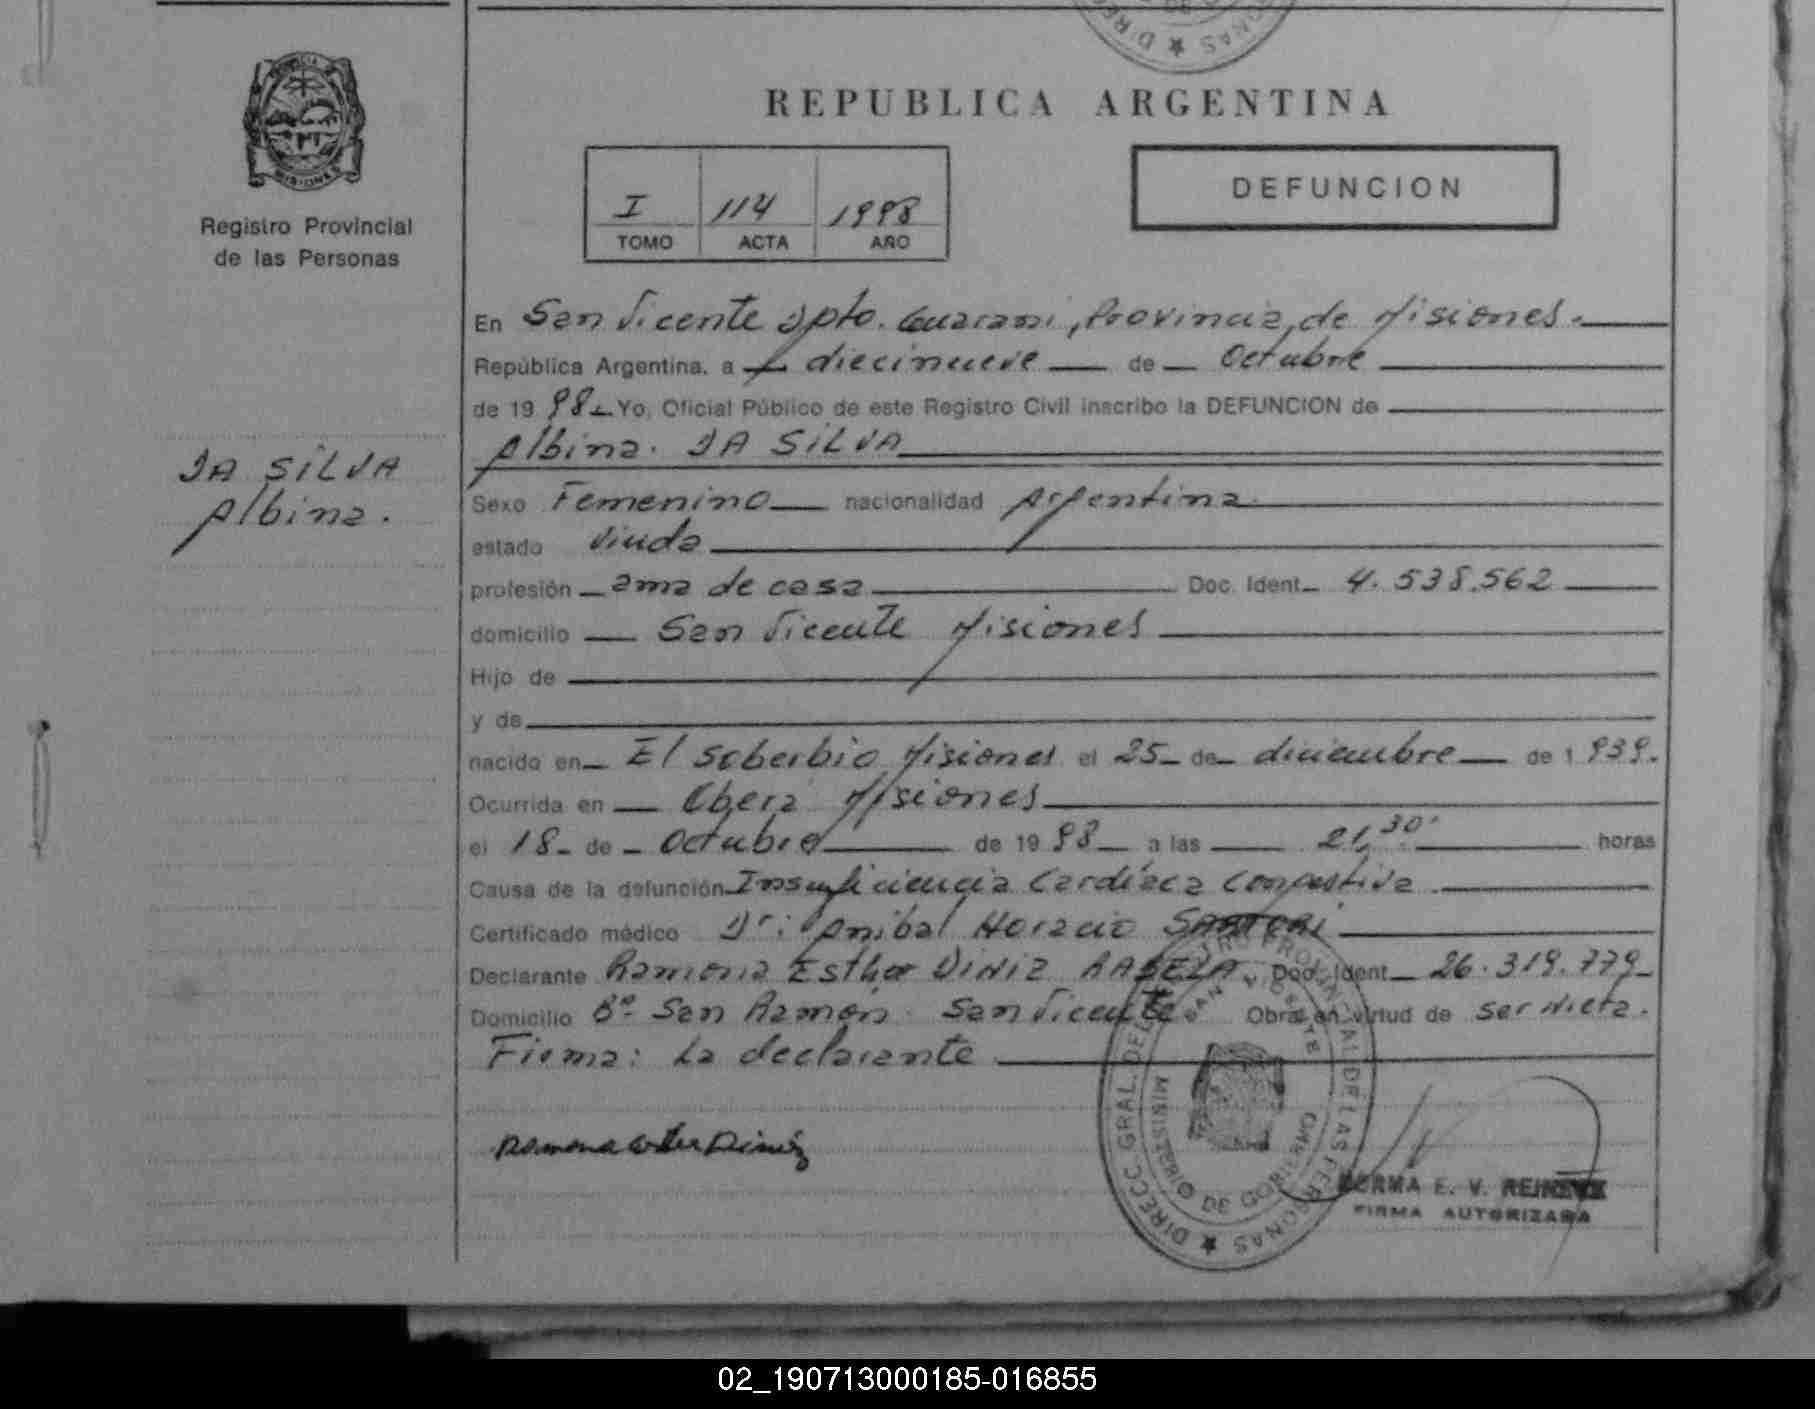 REPUBLICA ARGENTINA
PROVINCIA DE MISIONES
Registro Provincial
de las Personas
I 114 1998
TOMO ACTA AÑO
DEFUNCION
DA SILVA
Albina.
En San Vicente Dpto. Guaraní, Provincia, de Misiones.
República Argentina, a diecinueve de Octubre
de 1998 Yo, Oficial Público de este Registro Civil inscribo la DEFUNCION de
Albina. DA SILVA
Sexo Femenino nacionalidad Argentina
estado Viuda
profesión ama de casa Doc. Ident. 4.538.562
domicilio San Vicente Misiones
Hijo de
y de
nacido en El Soberbio Misiones el 25 de diciembre de 1939.
Ocurrida en Oberá Misiones
el 18 de Octubre de 1998 a las 21,30' horas
Causa de la defunción Insuficiencia Cardíaca Congestiva
Certificado médico Dr: Anibal Horacio SARTORI
Declarante Ramona Esther DINIZ Doc. Ident 26.319.779
Domicilio Bº San Ramón San Vicente. Obra en virtud de ser Nieta.
Firma: La declarante
DIRECC. GRAL. DEL REGISTRO PROVINCIAL DE LAS PERSONAS
SAN VICENTE
MINISTERIO DE GOBIERNO
NORMA E. V.
FIRMA AUTORIZADA
02_190713000185-016855